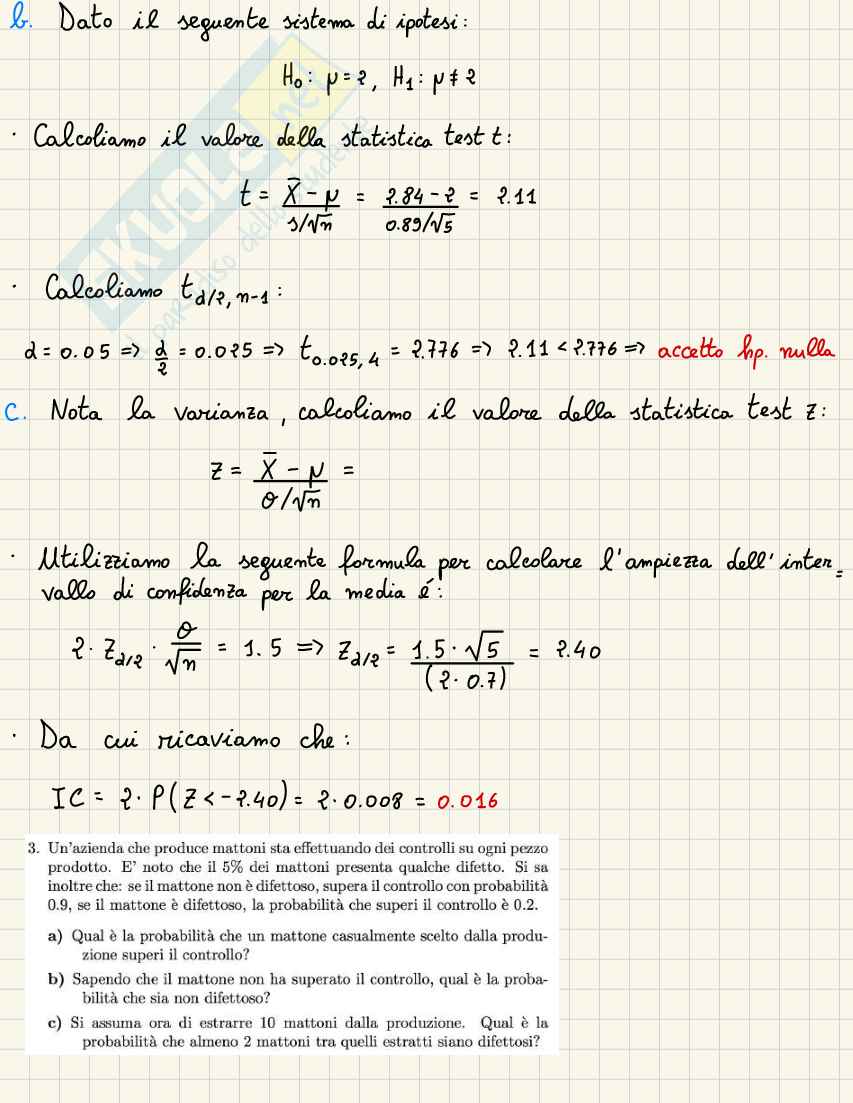 b. Dato il seguente sistema di ipotesi:
H₀: μ = 2, H₁: μ ≠ 2
· Calcoliamo il valore della statistica test t:
t = (X̄ - μ)/(s/√n) = (2.84 - 2)/(0.89/√5) = 2.11
· Calcoliamo t α/2, n-1 :
α = 0.05 => α/2 = 0.025 => t 0.025, 4 = 2.776 => 2.11 < 2.776 => accetto hp. nulla
c. Nota la varianza, calcoliamo il valore della statistica test z:
z = (X̄ - μ)/(σ/√n) =
· Utilizziamo la seguente formula per calcolare l'ampiezza dell'inter=
vallo di confidenza per la media é:
2 · Z α/2 · σ/√n = 1.5 => Z α/2 = (1.5 · √5)/(2 · 0.7) = 2.40
· Da cui ricaviamo che:
IC = 2 · P(Z < -2.40) = 2 · 0.008 = 0.016
3. Un'azienda che produce mattoni sta effettuando dei controlli su ogni pezzo
prodotto. E' noto che il 5% dei mattoni presenta qualche difetto. Si sa
inoltre che: se il mattone non è difettoso, supera il controllo con probabilità
0.9, se il mattone è difettoso, la probabilità che superi il controllo è 0.2.
a) Qual è la probabilità che un mattone casualmente scelto dalla produ-
zione superi il controllo?
b) Sapendo che il mattone non ha superato il controllo, qual è la proba-
bilità che sia non difettoso?
c) Si assuma ora di estrarre 10 mattoni dalla produzione. Qual è la
probabilità che almeno 2 mattoni tra quelli estratti siano difettosi?